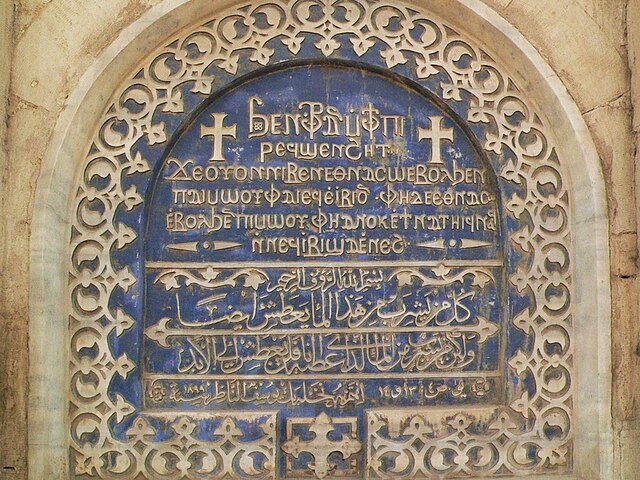 Ϧⲉⲛ ⲫⲣⲁⲛ ⲙⲫϯ ⲡⲓ
ⲣⲉϥϣⲉⲛϩⲏⲧ
ϫⲉ ⲟⲩⲟⲛ ⲛⲓⲃⲉⲛ ⲉⲑⲛⲁⲥⲱ ⲉⲃⲟⲗϧⲉⲛ
ⲡⲁⲓⲙⲱⲟⲩ ⲫⲁⲓ ⲉϥⲉ̀ⲓⲃⲓ ⲟⲛ ⲫⲏ ⲇⲉ ⲉⲑⲛⲁⲥⲱ
ⲉⲃⲟⲗϧⲉⲛ ⲡⲓⲙⲱⲟⲩ ⲫⲏ ⲁⲛⲟⲕ ⲉϯⲛⲁⲧⲏⲓϥ ⲛⲁϥ
ⲛⲛⲉϥⲓⲃⲓ ϣⲁ ⲉⲛⲉϩ
بسم الله الرؤف الرحيم
كل من يشرب من هذا الما يعطش ايضا
ولكن من يشرب من الما الذى اعطيه فلن يعطش الى الابد
يو ص ٤: ١٣ و ١٤ نخله بك يوسف الناظر سنة ١٨٩٩